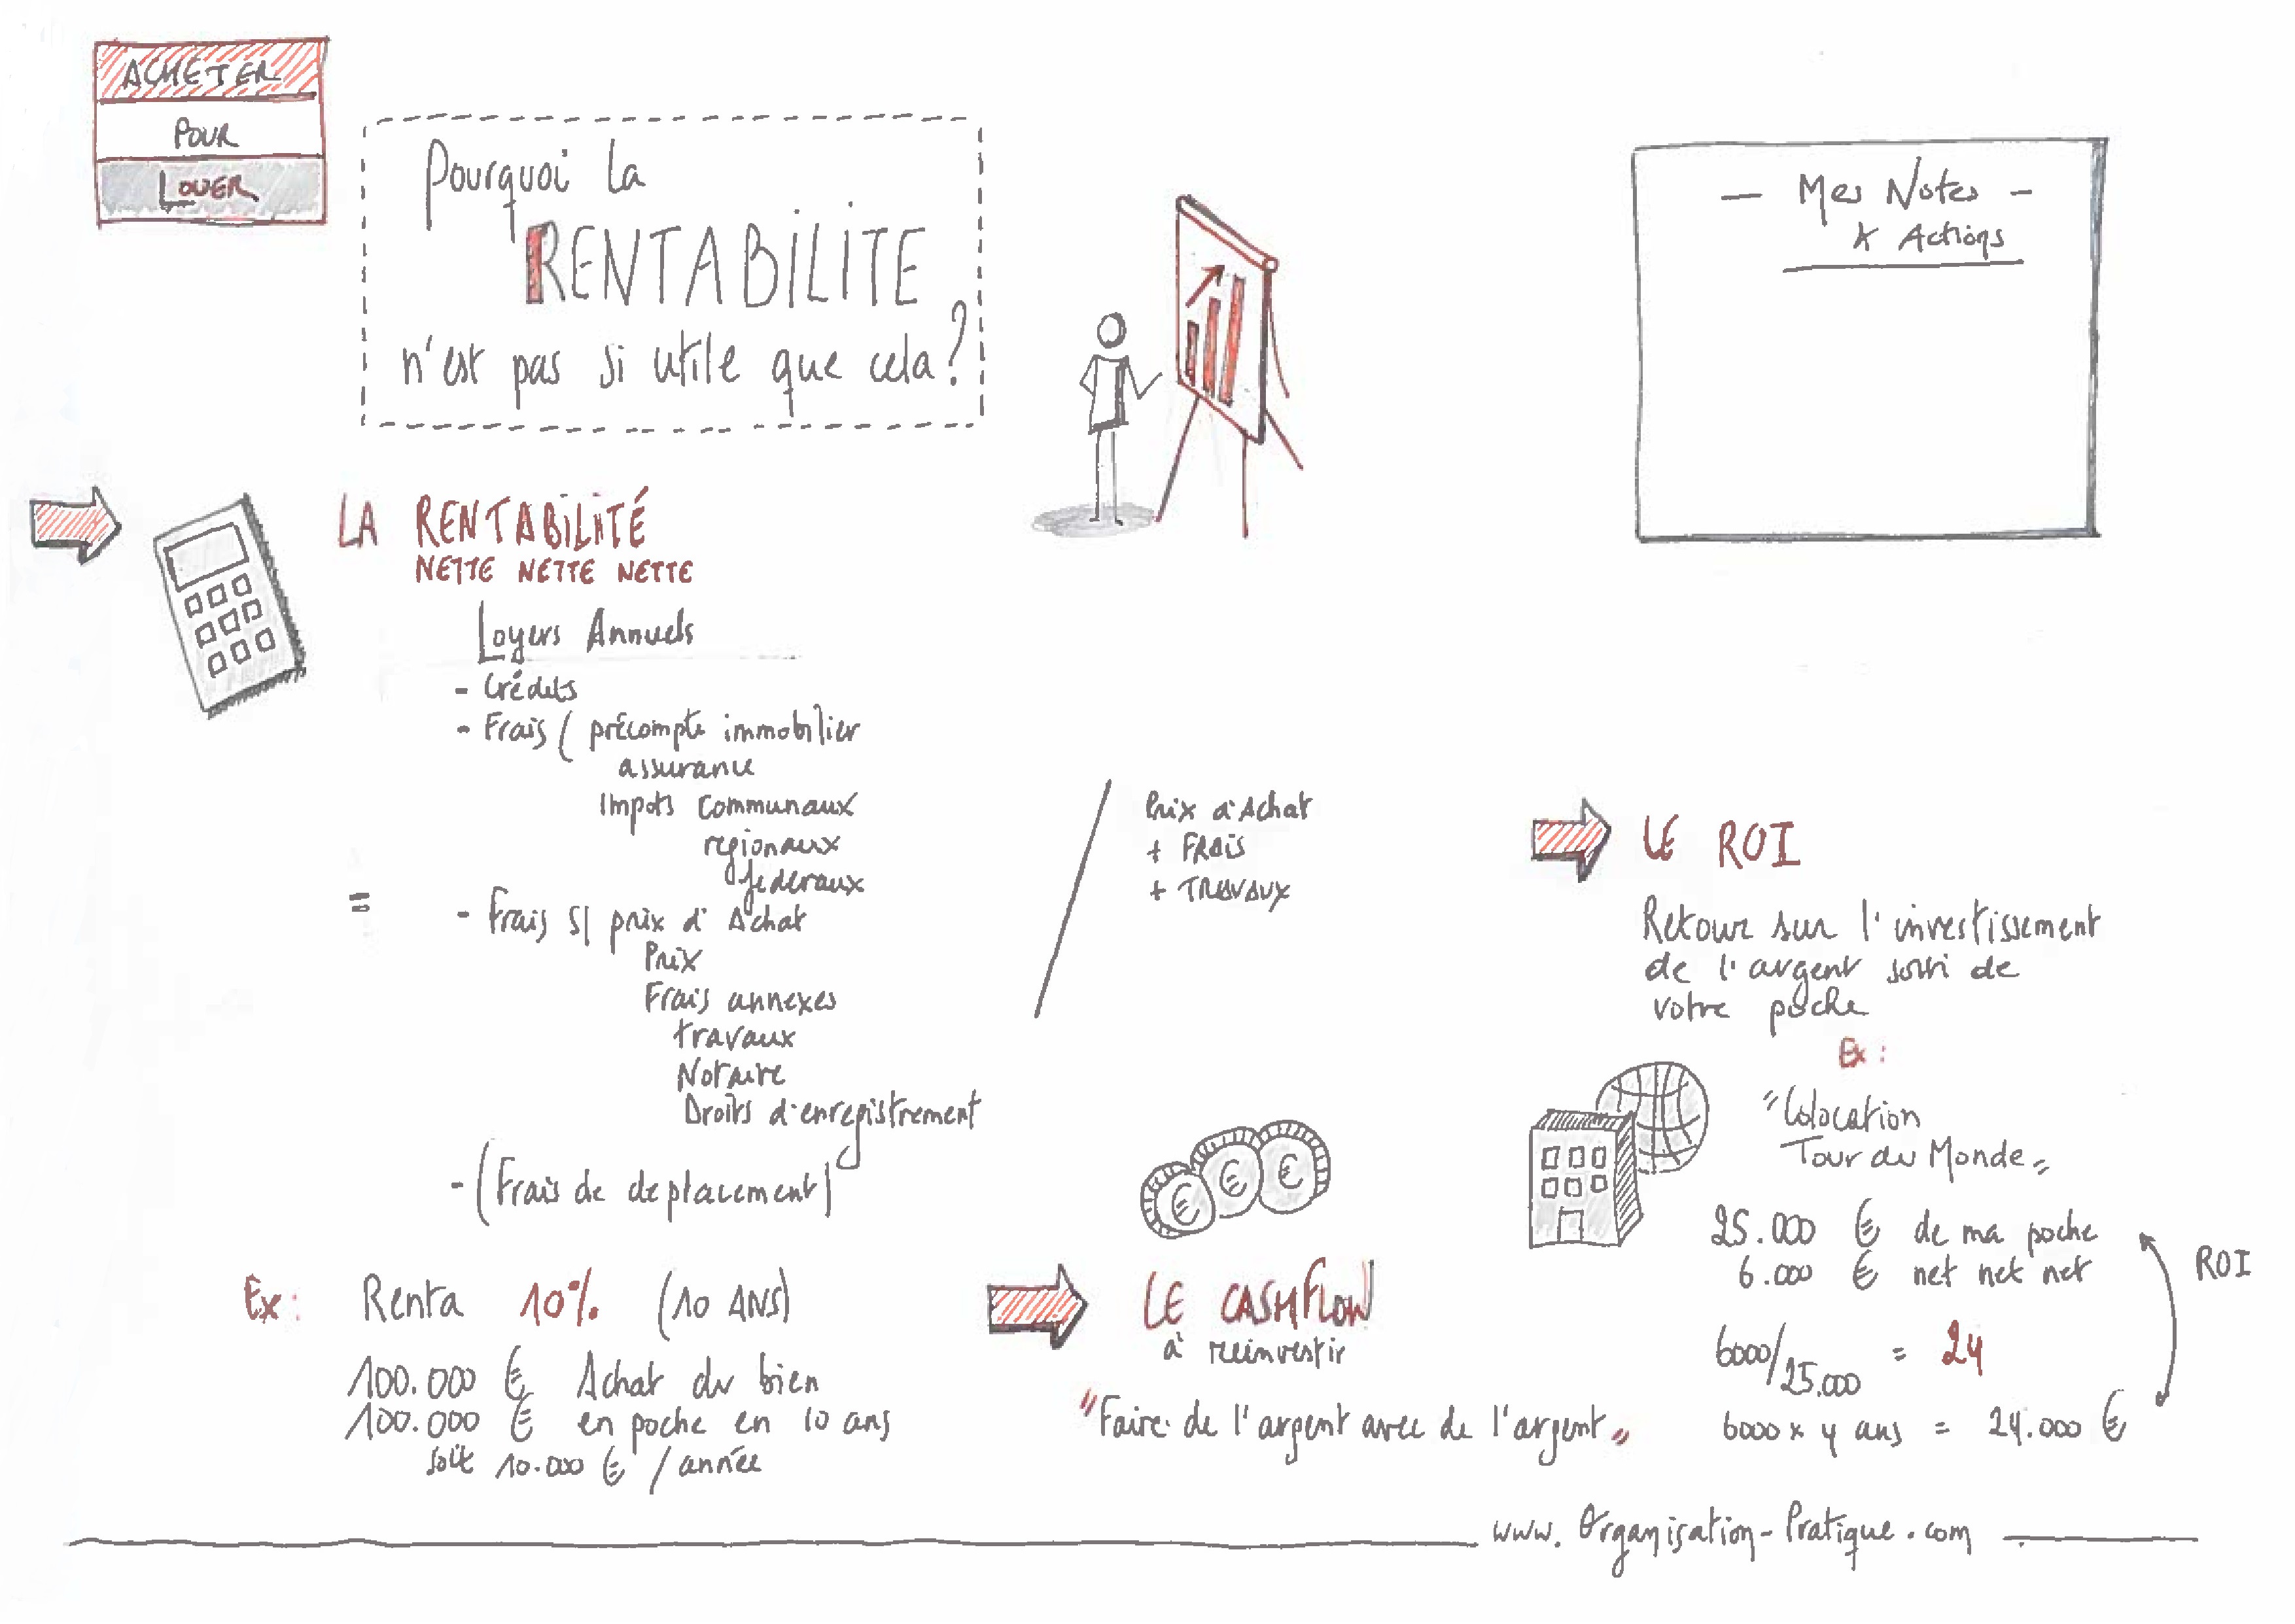 ACHETER
POUR
LOUER
Pourquoi la
RENTABILITE
n'est pas si utile que cela?
- Mes Notes -
& Actions
LA RENTABILITÉ
NETTE NETTE NETTE
Loyers Annuels
- Crédits
- Frais ( précompte immobilier
assurance
Impots communaux
regionaux
federaux
=
- Frais s/ prix d'Achat
Prix
Frais annexes
travaux
Notaire
Droits d'enregistrement
- (Frais de deplacement)
/
Prix d'Achat
+ FRAIS
+ TRAVAUX
Ex: Renta 10% (10 ANS)
100.000 € Achat du bien
100.000 € en poche en 10 ans
soit 10.000 € / année
€ € €
LE CASHFLOW
à reinvestir
"Faire de l'argent avec de l'argent"
LE ROI
Retour sur l'investissement
de l'argent sorti de
votre poche
Ex:
"Colocation
Tour du Monde"
25.000 € de ma poche
6.000 € net net net
ROI
6000/25.000 = 24
6000 x 4 ans = 24.000 €
www.Organisation-Pratique.com